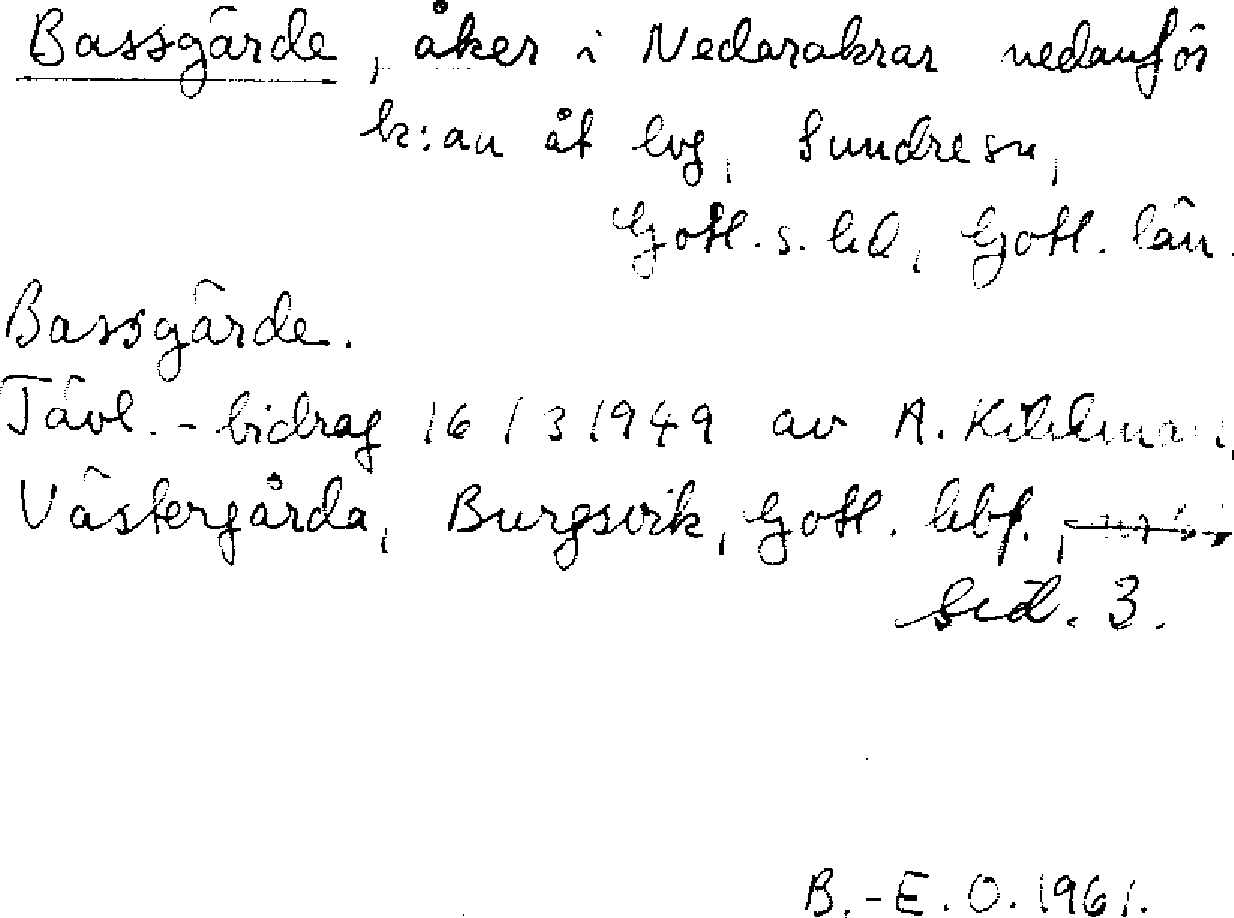 Bassgärde, åker i Nedarakrar nedanför
k:an åt lvg, Sundre sn,
Gotl. s. hd, Gotl. län.
Bassgärde.
Tävl.-bidrag 16/3 1949 av A.
Västergårda, Burgsvik, Gotl.
Sid. 3.
B.-E. O. 1961.